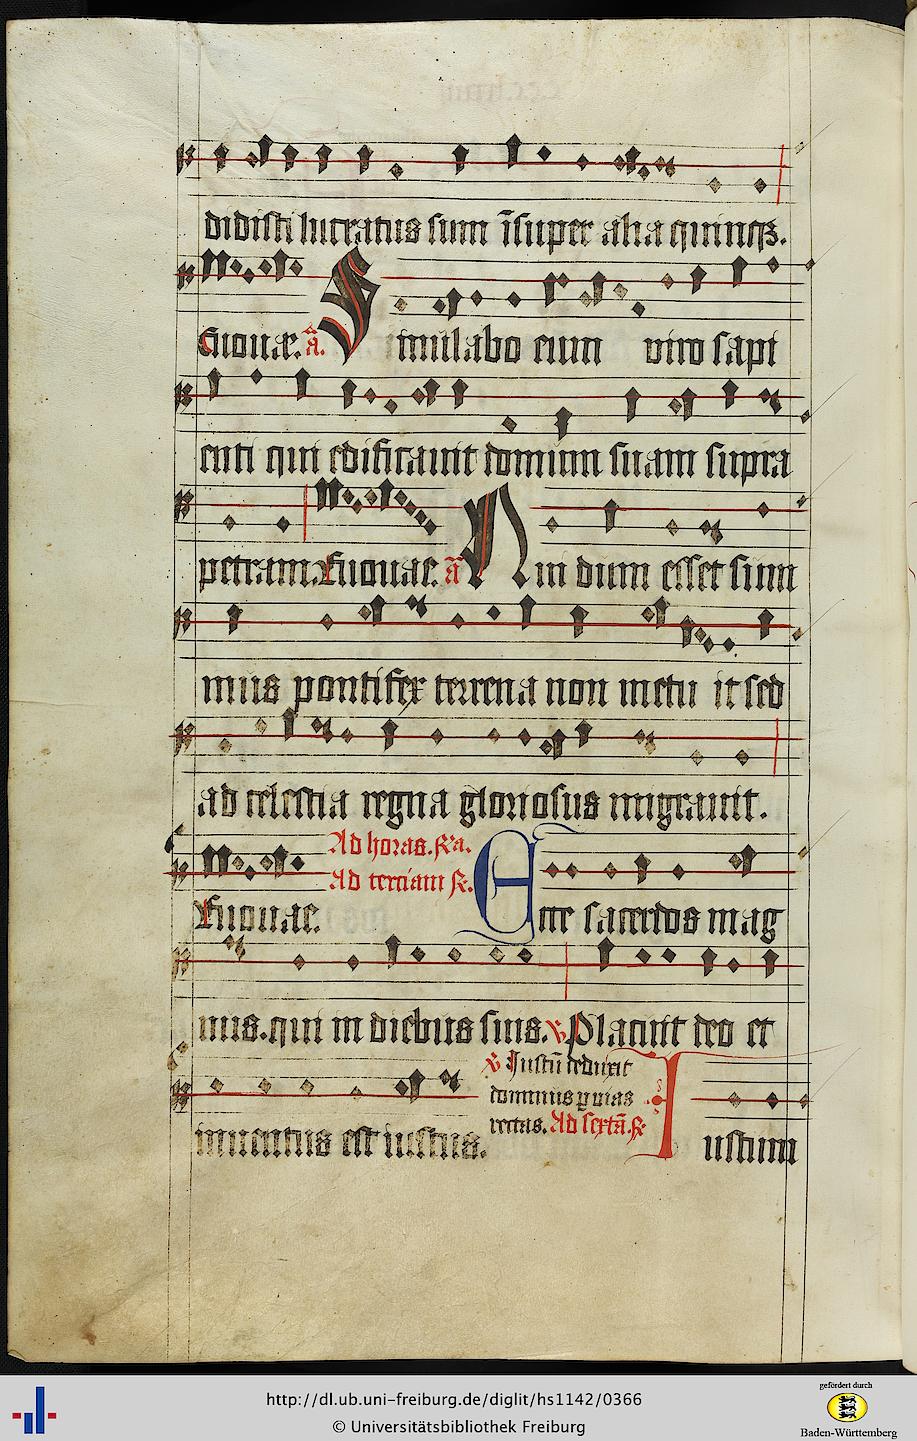 didisti lucratus sum īsuper alia quinqȝ.
Euouae. ā. Similabo eum viro sapi
enti qui edificauit domum suam supra
petram. Euouae. ā Nin dum esset sum
mus pontifex terrena non metu it sed
ad celestia regna gloriosus migrauit.
Ad horas. ꝶ a.
Ad terciam ꝶ.
Euouae. Ecce sacerdos mag
nus. qui in diebus suis. ꝟ Placuit deo et
ꝟ Justū deduxit
dominus ꝑ vias
rectas. Ad sextā. ꝶ
inuentus est iustus. Iustum
http://dl.ub.uni-freiburg.de/diglit/hs1142/0366
© Universitätsbibliothek Freiburg
gefördert durch
Baden-Württemberg